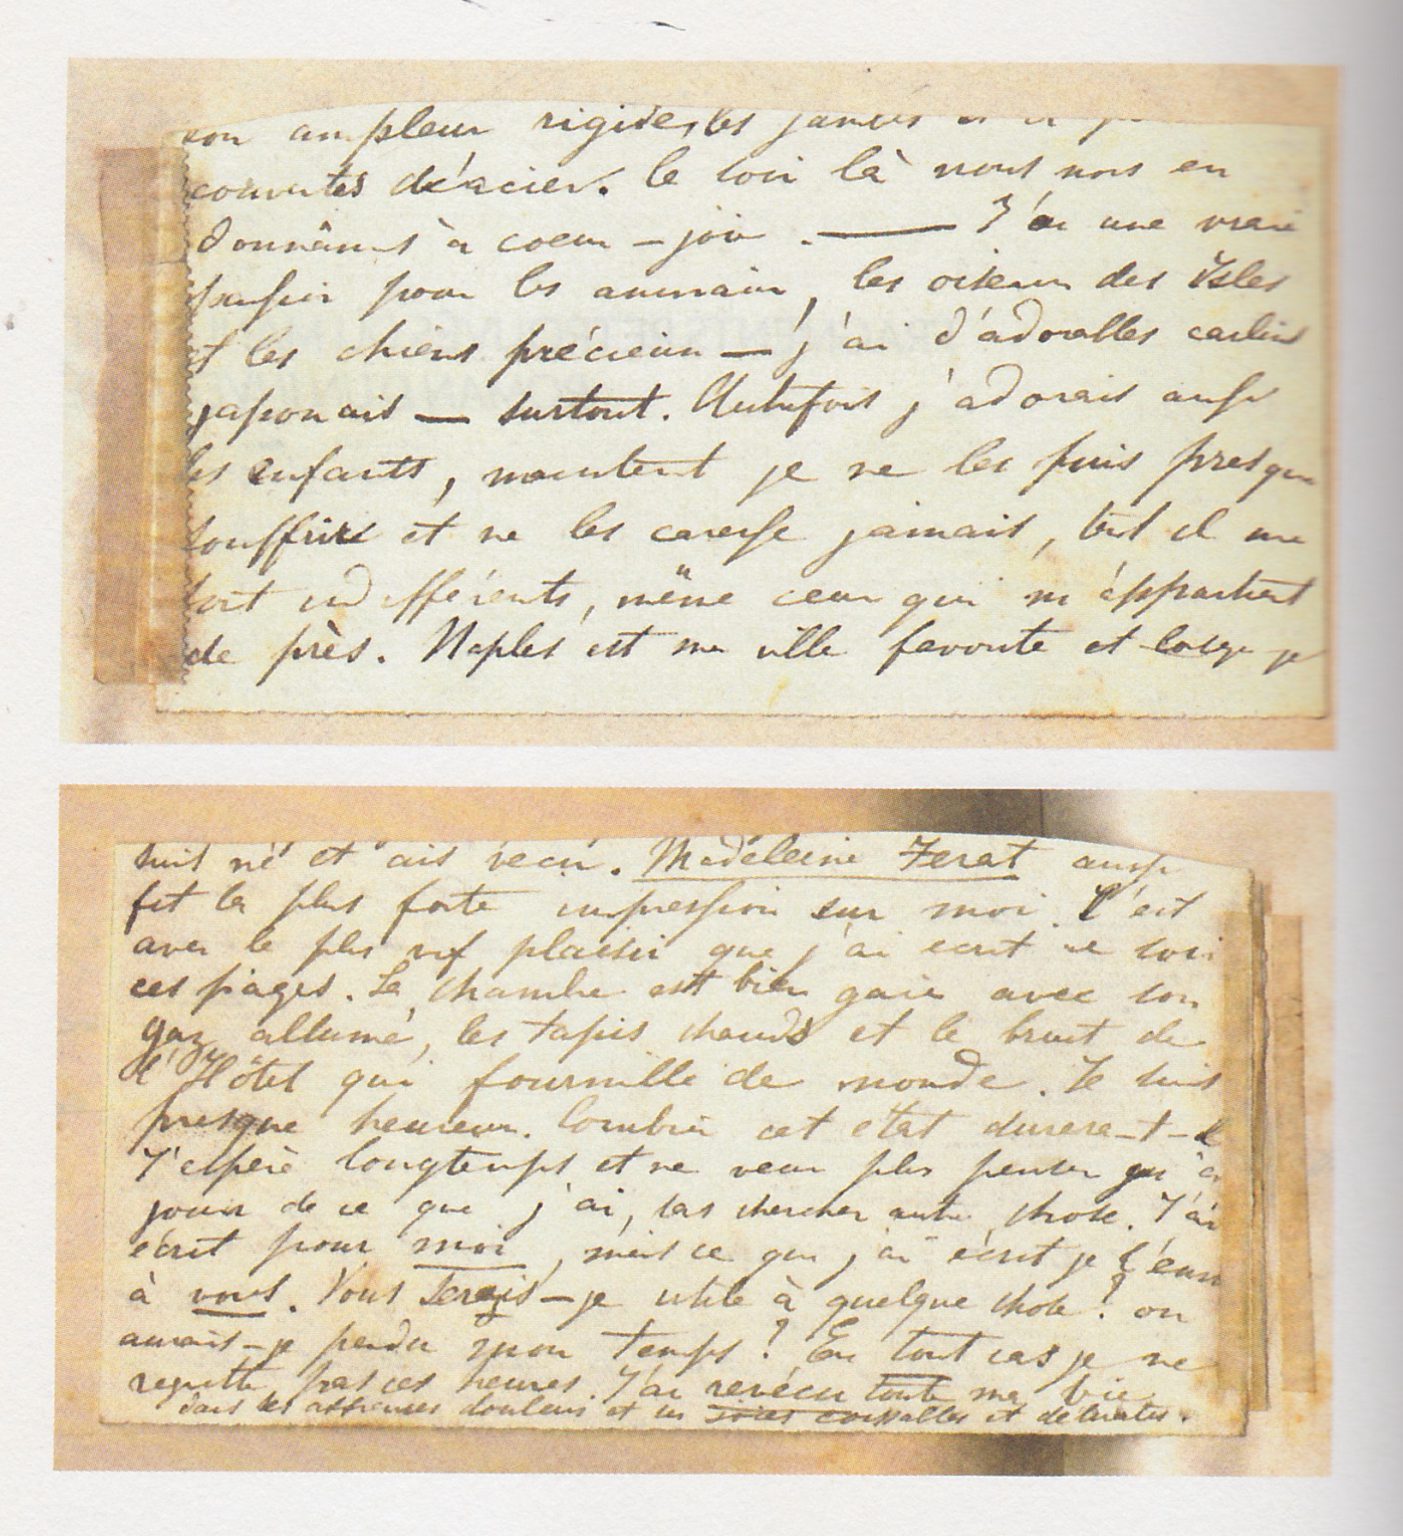 son ampleur rigide, les
couvertes d'acier. Ce soir là nous nous en
donnâmes à coeur-joie. — J'ai une vraie
passion pour les animaux, les oiseaux des Isles
et les chiens précieux — j'ai d'adorables carlins
japonais — surtout. Autrefois j'adorais aussi
les enfants, maintent je ne les puis presque
souffrir et ne les caresse jamais, tant il me
sont indifférents, même ceux qui m'appartient
de près. Naples est ma ville favorite et lorsque je
suis né et ais vecu. Madeleine Ferat aussi
fit la plus forte impression sur moi. C'est
avec le plus vif plaisir que j'ai ecrit ce soir
ces pages. La chambre est bien gaie avec son
gaz allumé, les tapis chauds et le bruit de
l'Hôtel qui fourmille de monde. Je suis
presque heureux. Combien cet état durera-t-il
J'espère longtemps et ne veux plus penser qu'à
jouir de ce que j'ai, sas chercher autre chose. J'ai
ecrit pour moi, mais ce que j'ai écrit je l'envoi
à vous. Vous serais-je utile à quelque chose? ou
aurais-je perdu mon temps? En tout cas je ne
regrette pas ces heures. J'ai revécu toute ma vie
dans les affreuses douleurs et les joies coupables et délirantes.